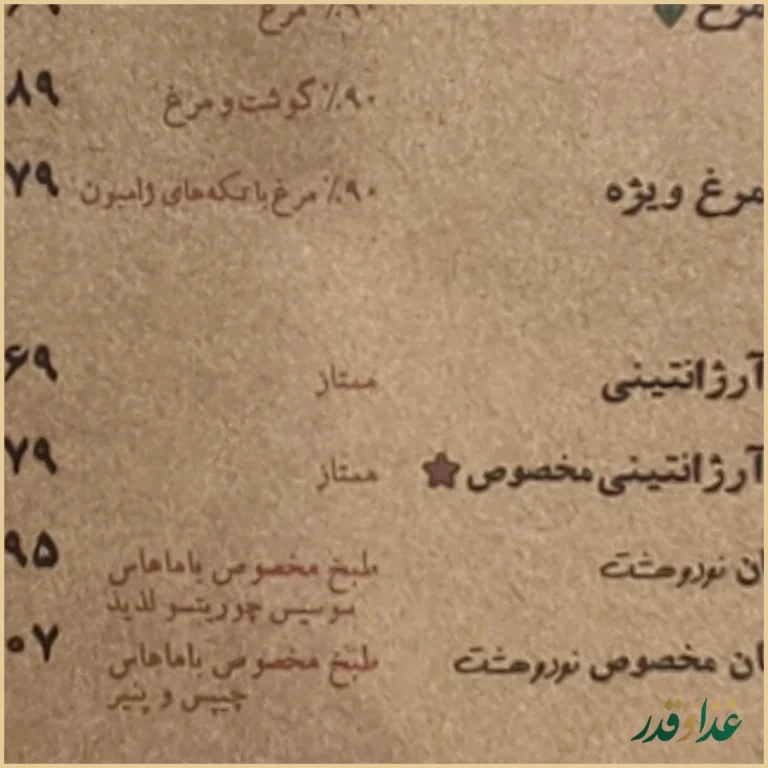 مرغ ۹۰٪ مرغ
۹۰٪ گوشت و مرغ ۸۹
مرغ ویژه ۹۰٪ مرغ با تکه‌های ژامبون ۷۹
آرژانتینی ممتاز ۶۹
آرژانتینی مخصوص ممتاز ۷۹
نودوهشت طبخ مخصوص باماهاس ۹۵
سوسیس چوریتسو لذیذ
مخصوص نودوهشت طبخ مخصوص باماهاس ۰۷
چیپس و پنیر
غذا و قدر